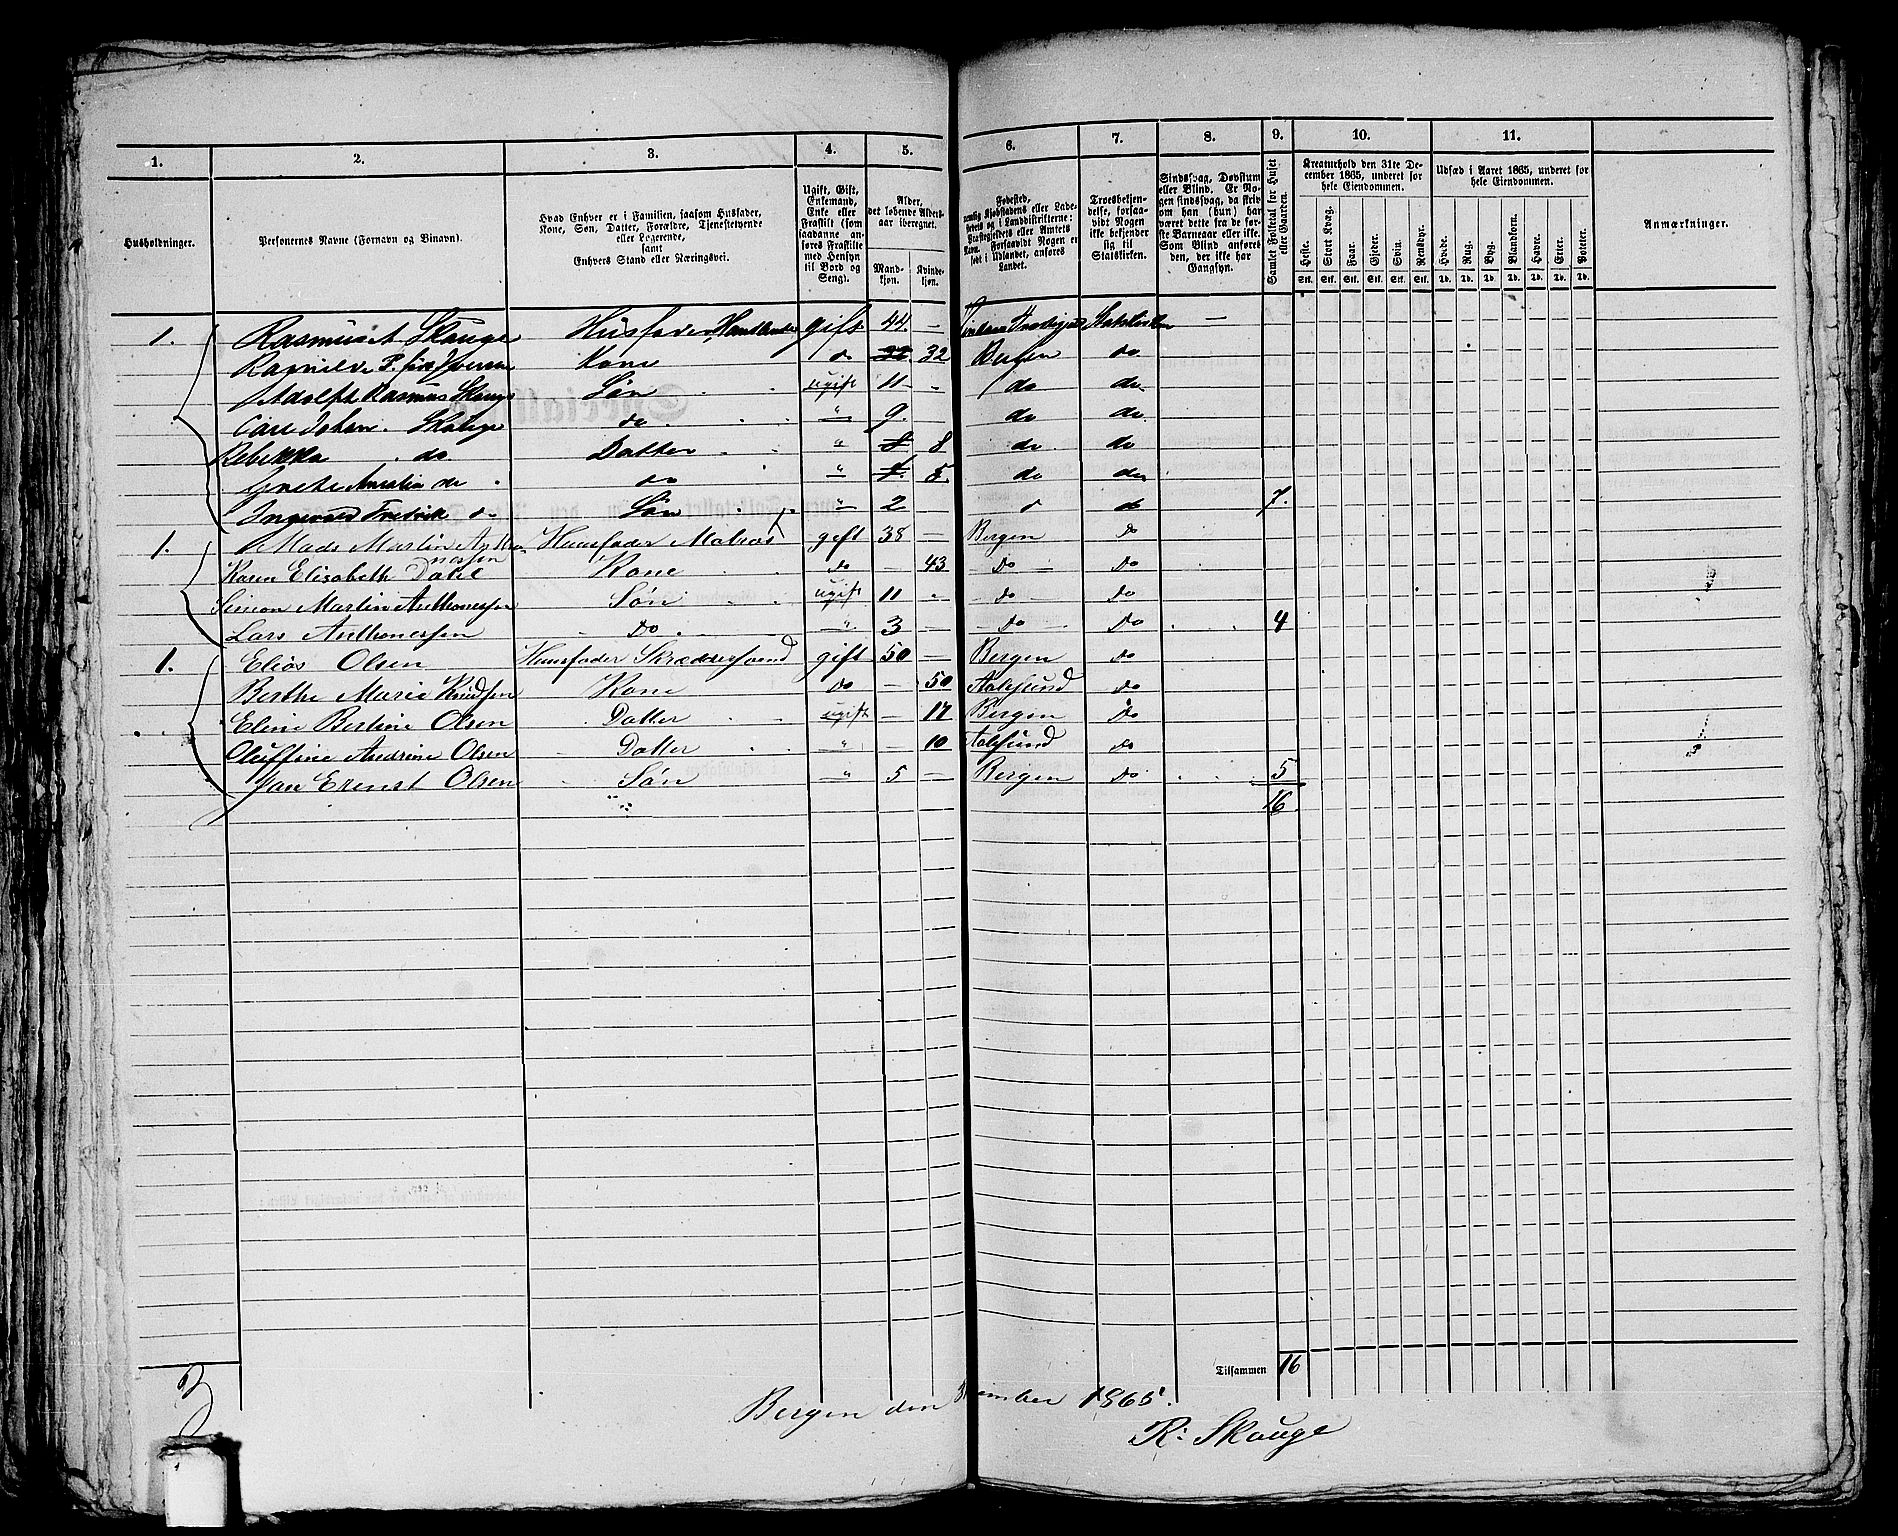 1. 2. 3. 4. 5. 6. 7. 8. 9. 10. 11.
Husholdninger.
Personernes Navne (Fornavn og Binavn).
Hvad Enhver er i Familien, saasom Husfader,
Kone, Søn, Datter, Forældre, Tjenestetyende
eller Logerende,
samt
Enhvers Stand eller Næringsvei.
Ugift, Gift,
Enkemand,
Enke eller
Fraskilt (som
saadanne an-
føres Fraskilte
med Hensyn
til Bord og
Seng).
Alder,
det løbende Alders-
aar iberegnet.
Mand-
kjøn.
Kvinde-
kjøn.
Fødested,
nemlig Kjøbstadens eller Lade-
stedets og i Landdistrikterne:
Præstegjeldets eller Amtets
Navn. Forsaavidt Nogen er
født i Udlandet, anføres
Landet.
Troesbekjen-
delse, forsaa-
vidt Nogen
ikke bekjender
sig til
Statskirken.
Sindssvag, Døvstum
eller Blind. Er No-
gen sindssvag, da skriv
om han (hun) har
været dette fra de før-
ste Barneaar eller ikke.
Som Blind anføres
den, der ikke har
Gangsyn.
Samlet Folketal for Huset
eller Gaarden.
Kreaturhold den 31te De-
cember 1865, underet for
hele Eiendommen.
Heste. Stort Kvæg. Faar. Gjeder. Svin. Rensdyr.
Stk. Stk. Stk. Stk. Stk. Stk.
Udsæd i Aaret 1865, underet for
hele Eiendommen.
Hvede. Rug. Byg. Blandkorn. Havre. Erter. Poteter.
Td. Td. Td. Td. Td. Td. Td.
Anmærkninger.
1. Rasmus A Skauge Husfader, Handlende gift 44. —
Ragnilde P. Kone do 32 32 Bergen do
Adolft Rasmus Skauge Søn ugift 11 - do do
Carl Johan. Skauge do " 9. do do
Rebekka do Datter " 8 8 do do
Amalia do do " 5. do do
Fredrik do Søn " 2 do do 7.
1. Mads Martin Antho- Huusfader Matros gift 38 — Bergen Do
nessen
Karen Elisabeth Dahl Kone do — 43 Do Do
Simon Martin Anthonessen Søn ugift 11 " Do Do
Lars Anthonessen Do " 3 — Do Do 4
1. Elias Olsen Huusfader Skrædersvend gift 50 — Bergen Do
Berthe Marie Knudsen Kone do — 50 Aalesund Do
Eline Bertine Olsen Datter ugift — 17 Bergen Do
Oluffine Andrine Olsen Datter " 10 Aalesund do
Jan Erenst Olsen Søn " 5 — Bergen Do 5
16
Tilsammen 16
Bergen den 1865.
R: Skauge